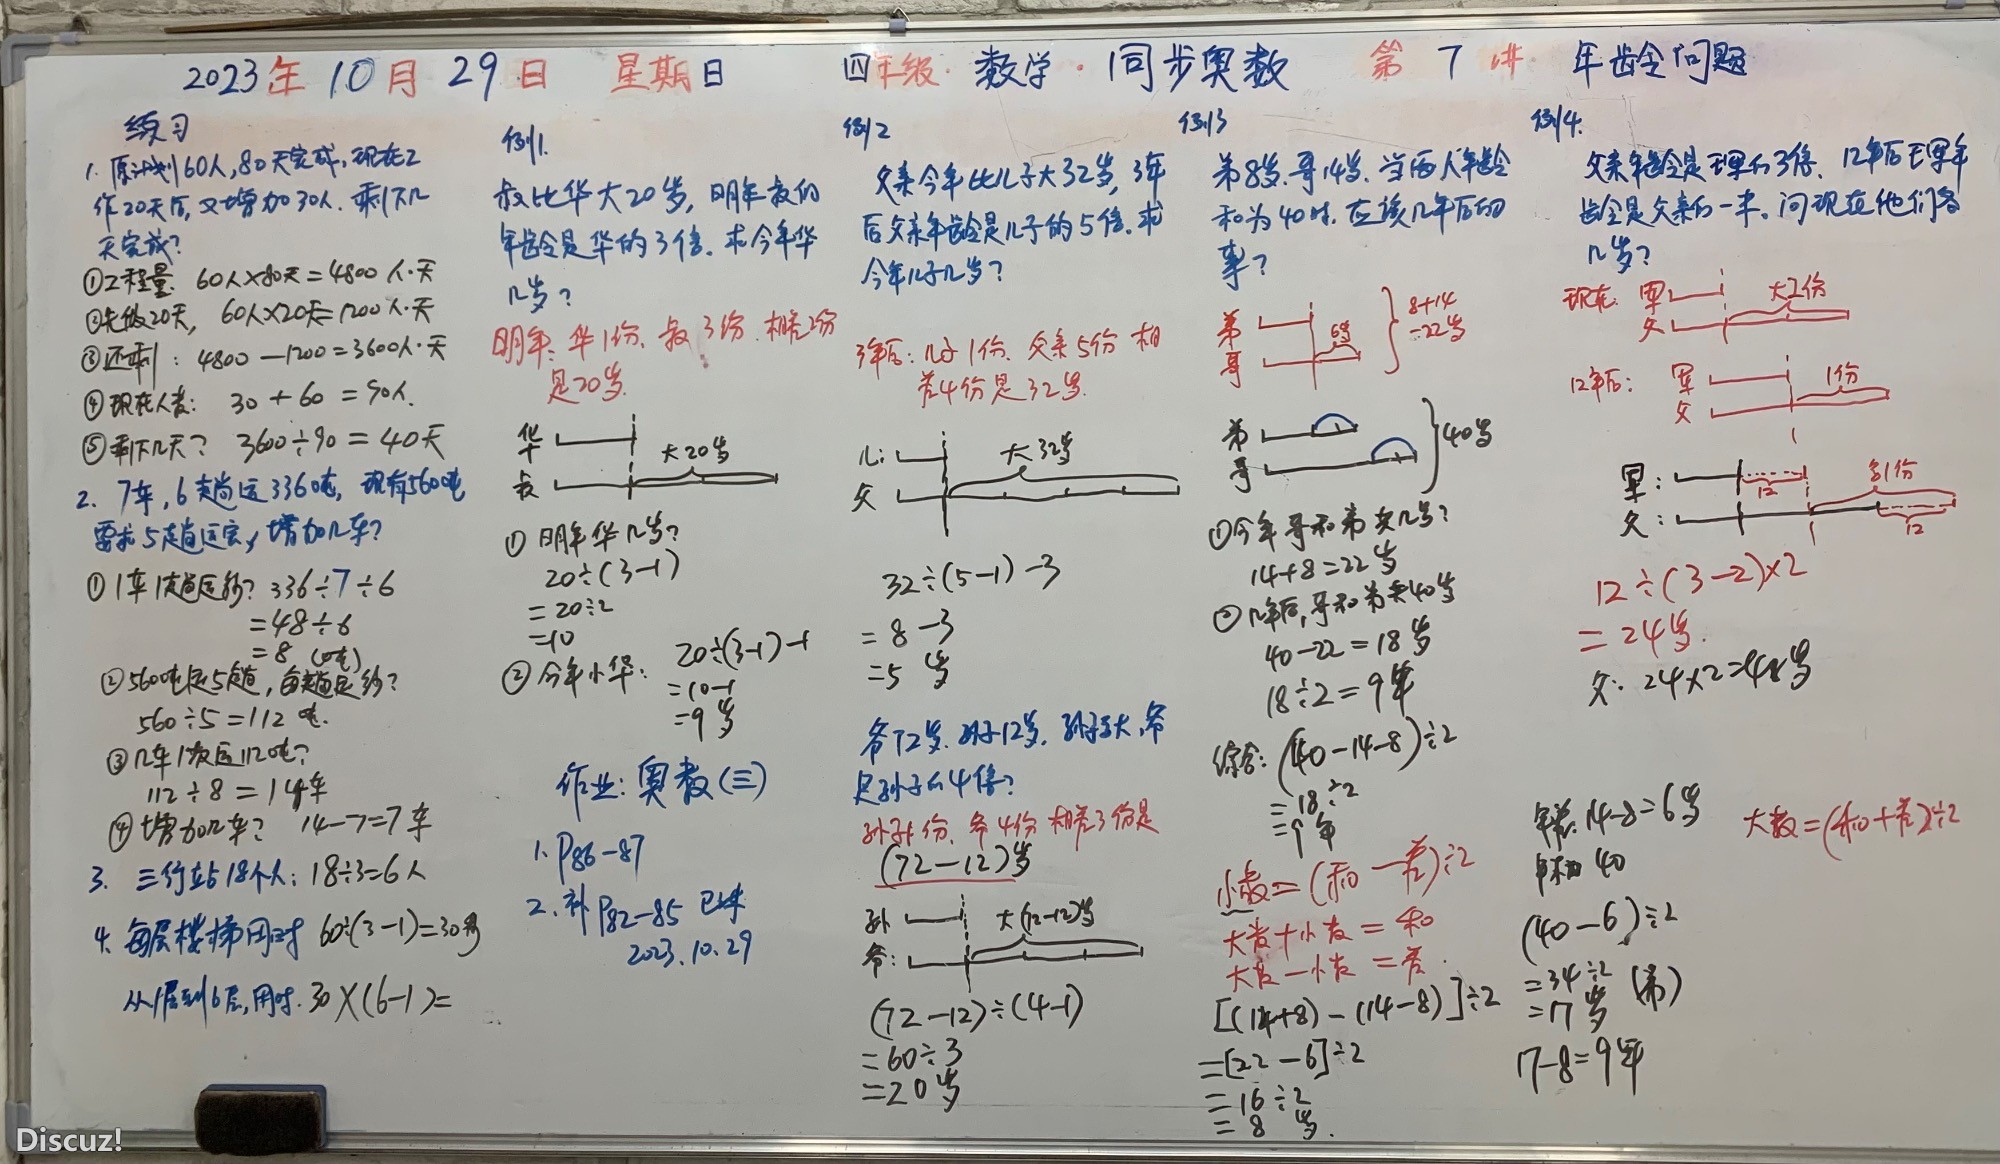 2023年10月29日 星期日 四年级·数学·同步奥数 第7讲· 年龄问题
练习
1. 原计划60人,80天完成,现在工
作20天后,又增加30人.剩下几
天完成?
①工程量: 60人×80天=4800人·天
②先做20天, 60人×20天=1200人·天
③还剩: 4800-1200=3600人·天
④现在人数: 30+60=90人.
⑤剩下几天? 3600÷90=40天
2. 7车,6趟运336吨,现有560吨
要求5趟运完,增加几车?
①1车1趟运多少? 336÷7÷6
=48÷6
=8 (吨)
②560吨运5趟,每趟运多少?
560÷5=112吨.
③几车1次运112吨?
112÷8=14车
④增加几车? 14-7=7车
3. 三行站18个人: 18÷3=6人
4. 每层楼梯用时 60÷(3-1)=30秒
从1层到6层,用时. 30×(6-1)=
例1.
叔比华大20岁,明年叔的
年龄是华的3倍.求今年华
几岁?
明年:华1份、叔3份.相差2份
是20岁.
华
叔 大20岁
①明年华几岁?
20÷(3-1)
=20÷2
=10
②今年小华: 20÷(3-1)-1
=10-1
=9岁
作业:奥数(三)
1. P86-87
2. 补P82-85
2023.10.29
例2
父亲今年比儿子大32岁,3年
后父亲年龄是儿子的5倍.求
今年儿子几岁?
3年后:儿子1份、父亲5份 相
差4份是32岁.
儿:
父 大32岁
32÷(5-1)-3
=8-3
=5岁
爷72岁.孙子12岁.孙子多大,爷
是孙子的4倍?
孙子1份、爷4份 相差3份是
(72-12)岁
孙
爷: 大(72-12)岁
(72-12)÷(4-1)
=60÷3
=20岁
例3
弟8岁.哥14岁.当两人年龄
和为40时.应该几年后的
事?
弟
哥 6岁 8+14
=22岁
弟
哥 40岁
①今年哥和弟共几岁?
14+8=22岁
②几年后,哥和弟共40岁
40-22=18岁
18÷2=9年
综合: (40-14-8)÷2
=18÷2
=9年
小数=(和-差)÷2
大数+小数=和
大数-小数=差.
[(14+8)-(14-8)]÷2
=[22-6]÷2
=16÷2
=8岁.
例4.
父亲年龄是王军的3倍.12年后王军年
龄是父亲的一半.问现在他们各
几岁?
现在: 军
父 大2份
12年后: 军
父 1份
军: 12
父: 12
12÷(3-2)×2
=24岁.
父: 24×2=48岁
年差: 14-8=6岁
年和40
(40-6)÷2
=34÷2
=17岁 (弟)
17-8=9年
大数=(和+差)÷2
Discuz!